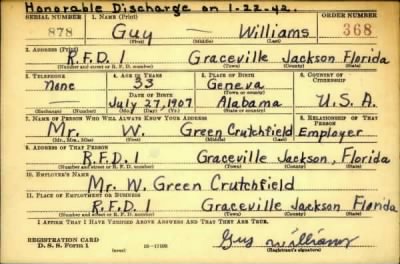 Honorable Discharge on 1-22-42.
SERIAL NUMBER 1. NAME (Print) ORDER NUMBER
878 Guy — Williams 368
(First) (Middle) (Last)
2. ADDRESS (Print)
R.F.D. 1 Graceville Jackson Florida
(Number and street or R. F. D. number) (Town) (County) (State)
3. TELEPHONE 4. AGE IN YEARS 5. PLACE OF BIRTH 6. COUNTRY OF CITIZENSHIP
None 33 Geneva
DATE OF BIRTH (Town or county)
July 27, 1907 Alabama U.S.A.
(Exchange) (Number) (Mo.) (Day) (Yr.) (State or country)
7. NAME OF PERSON WHO WILL ALWAYS KNOW YOUR ADDRESS 8. RELATIONSHIP OF THAT PERSON
Mr. W. Green Crutchfield Employer
(Mr., Mrs., Miss) (First) (Middle) (Last)
9. ADDRESS OF THAT PERSON
R.F.D. 1 Graceville Jackson, Florida
(Number and street or R. F. D. number) (Town) (County) (State)
10. EMPLOYER'S NAME
Mr. W. Green Crutchfield
11. PLACE OF EMPLOYMENT OR BUSINESS
R.F.D. 1 Graceville Jackson Florida
(Number and street or R. F. D. number) (Town) (County) (State)
I AFFIRM THAT I HAVE VERIFIED ABOVE ANSWERS AND THAT THEY ARE TRUE.
REGISTRATION CARD Guy Williams
D. S. S. Form 1 (over) (Registrant's signature)